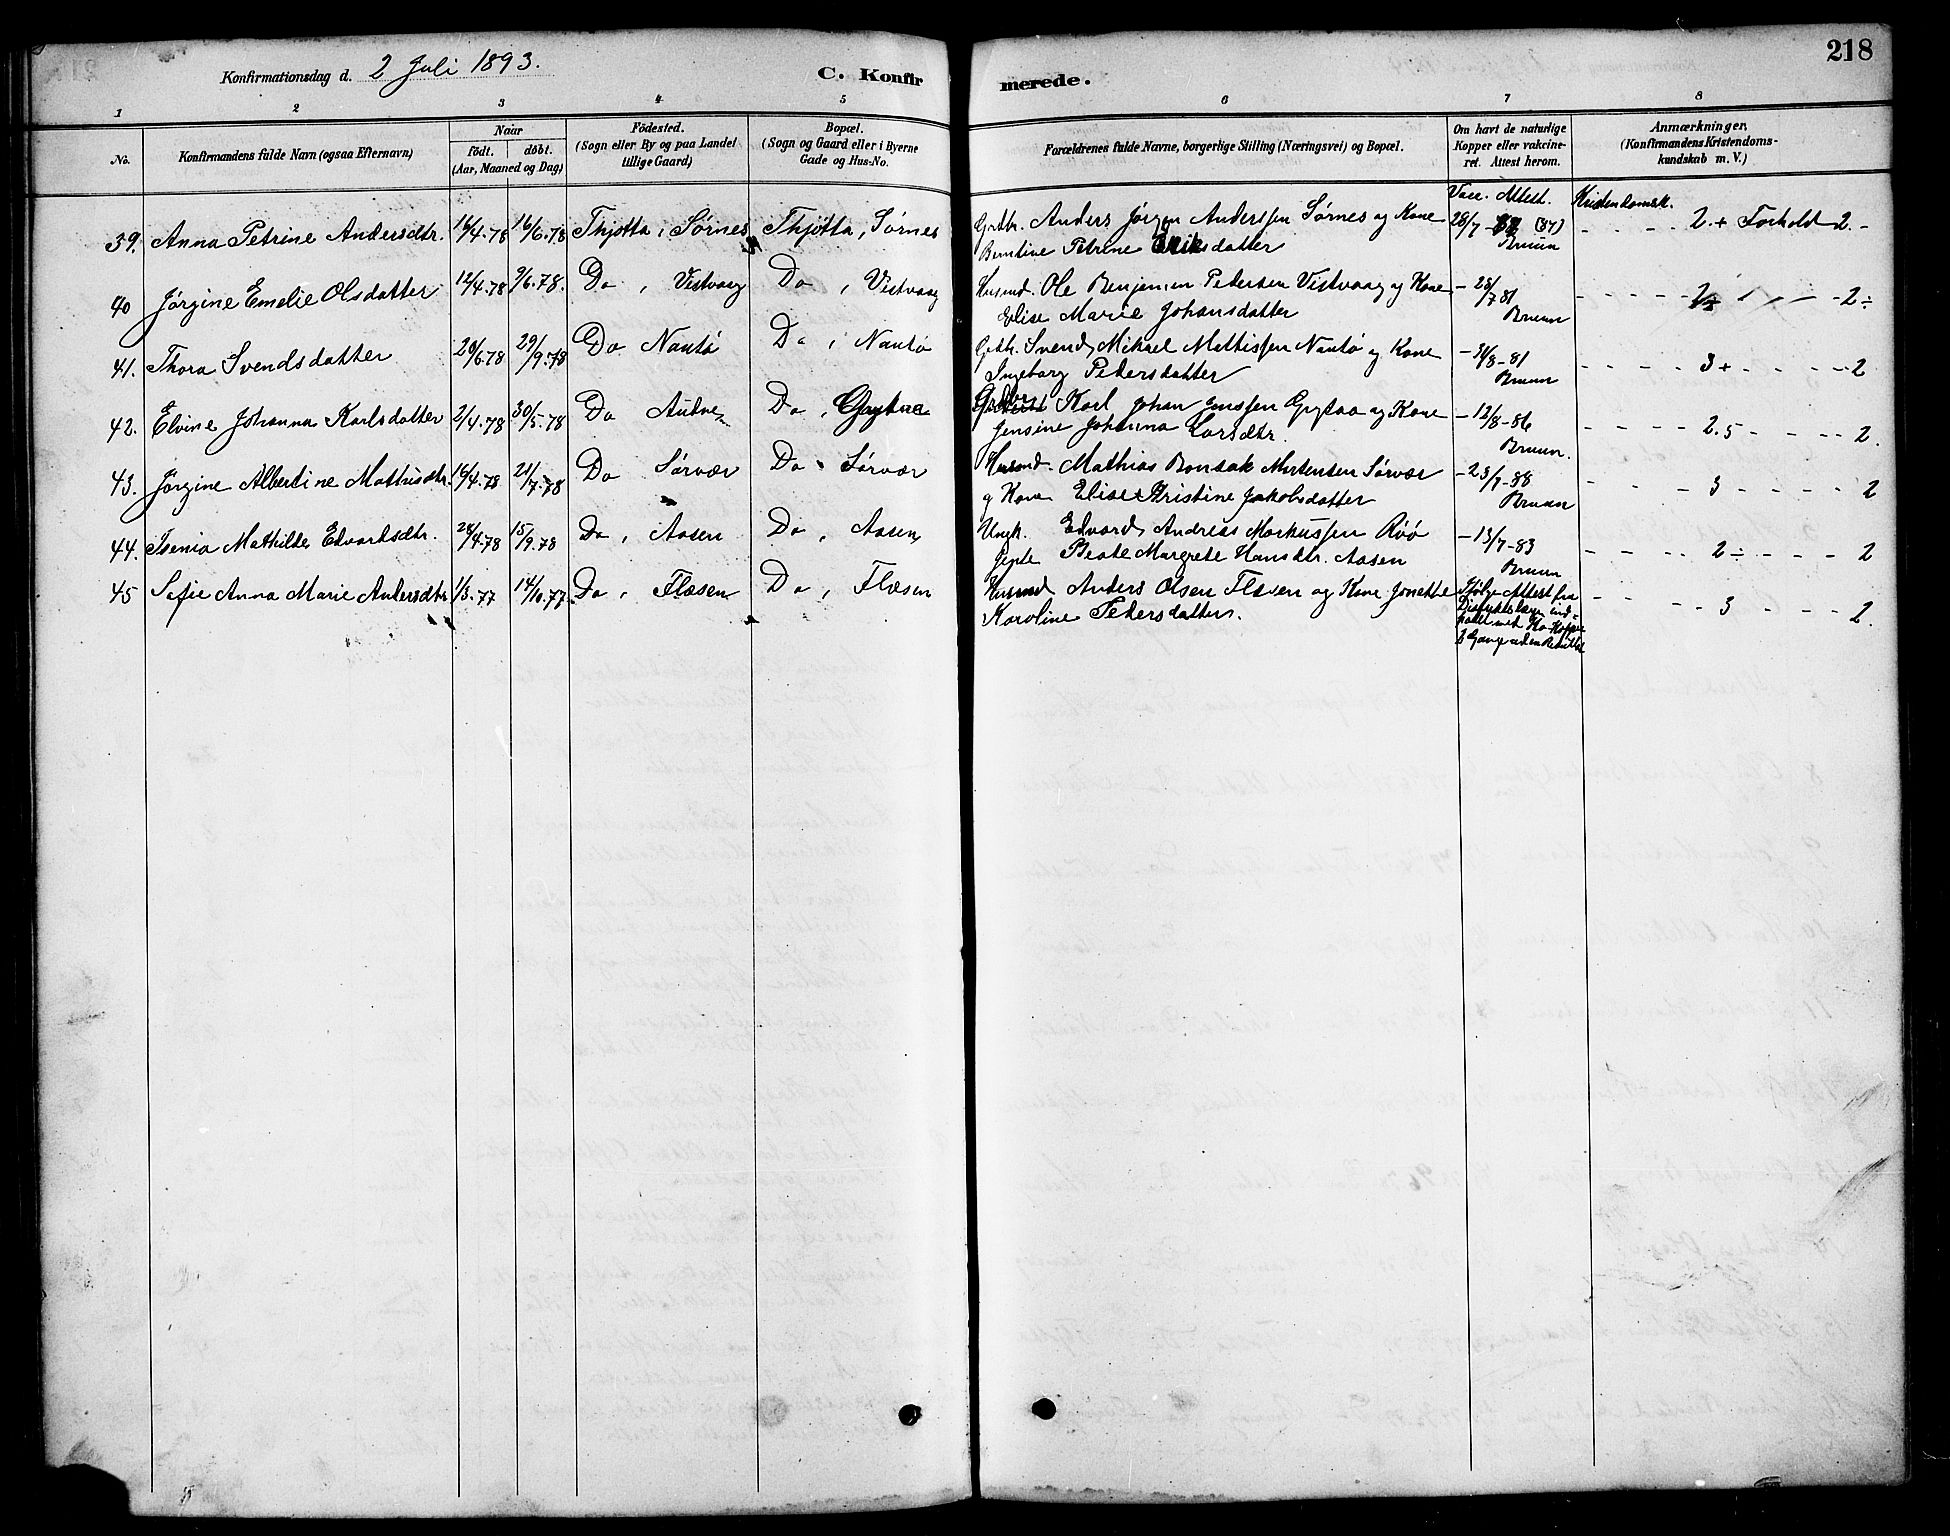 218
Konfirmationsdag d. 2 Juli 1893.
C. Konfir merede.
1 2 3 4 5 6 7 8
No.
Konfirmandens fulde Navn (ogsaa Efternavn)
Naar
födt. döbt.
(Aar, Maaned og Dag)
Födested.
(Sogn eller By og paa Landet
tillige Gaard)
Bopæl.
(Sogn og Gaard eller i Byerne
Gade og Hus-No.
Forældrenes fulde Navne, borgerlige Stilling (Næringsvei) og Bopæl.
Om havt de naturlige
Kopper eller vakcine-
ret. Attest herom.
Anmærkninger.
(Konfirmandens Kristendoms-
kundskab m. V.)
Vacc. Attest. Kristendomsk.
39. Anna Petrine Andersdtr. 16/4.78 16/6.78 Thjøtta, Sørnes Thjøtta, Sørnes Grdbr. Anders Jørgen Anderssen Sørnes og Kone 28/7 - (87) 2.+ Forhold 2.-
Berntine Petrine Eriksdatter Bruun
40 Jørgine Emelie Olsdatter 12/4.78 9/6.78. Do, Vistvaag Do, Vistvaag Husmd. Ole Benjamin Pedersen Vistvaag og Kone - 28/7 81 2 ÷
Elise Marie Johansdatter Bruun
41. Thora Svendsdatter 20/6.78 29/9.78 Do Nautø Do, Nautø Grdbr. Svend Mikael Mathissen Nautø og Kone - 31/8-81 3+ 2
Ingeborg Pedersdatter Bruun
42. Elvine Johanna Karlsdatter 2/4.78 30/5.78 Do Do, Grdbr. Karl Johan Jenssen og Kone - 12/8-86 2.5 2.
Jensine Johanna Larsdtr. Bruun.
43. Jørgine Albertine Mathisdtr. 16/4.78 21/7.78 Do Sørvær Do Sørvær Husmd. Mathias Bonsak Mortensen Sørvær - 23/7-88 3 2
og Kone Elise Kristine Jakobsdatter Bruun
44. Isenia Mathilde Edvardsdtr. 24/4.78 15/9.78 Do, Aasen Do, Aasen Ungk. Edvard Andreas Markussen Røø - 13/7-83 2 ÷ 2
Pigte Beate Margrete Hansdtr. Aasen Bruun
45 Sofie Anna Marie Andersdtr 1/3.77 14/10.77. Do, Flæsen Do, Flæsen Husmd Anders Olsen Flæsen og Kone Jonette Ifølge Attest fra 3 2.
Karoline Pedersdatter. Distriktslæge ind-
podet med Ko-Kopper
2 Gange uden Resultat